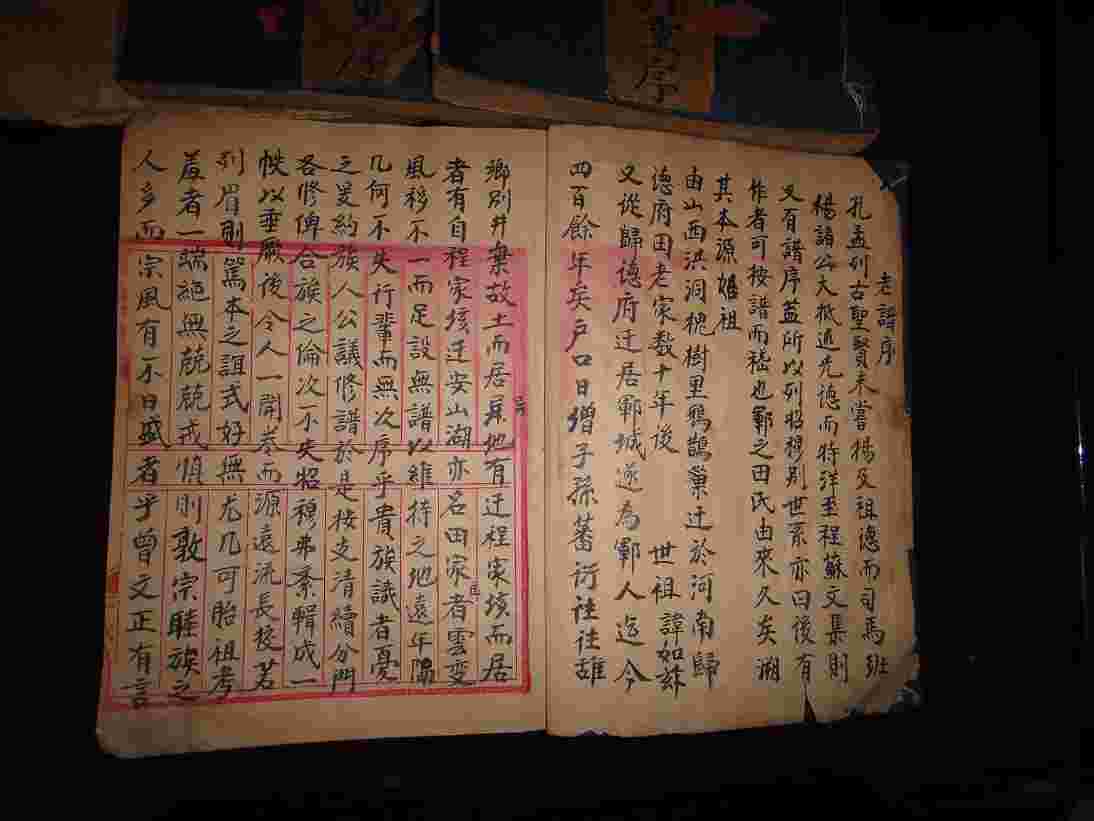 老譜序
孔孟列古聖賢未嘗揚父祖德而司馬班
楊諸公大抵述先德而特詳至程蘇文集則
又有譜序蓋所以列昭穆別世系亦曰後有
作者可按譜而嵇也鄆之田氏由來久矣溯
其本源始祖
由山西洪洞槐樹里鸛鵲巢迁於河南歸
德府田老家数十年後 世祖諱如蘇
又從歸德府迁居鄆城遂為鄆人迄今
四百餘年矣戶口日增子孫蕃衍往往離
鄉別井棄故土而居異地有迁程家垓而居
者有自程家垓迁安山湖亦名田家者雲变
風移不一而足設無譜以維持之地遠年隔
几何不失行輩而無次序乎貴族識者憂
之爰約族人公議修譜於是按支清續分門
各修俾合族之倫次不失昭穆弗紊輯成一
帙以垂厥後令人一開卷而源遠流長挍若
列眉則篤本之誼式好無尤几可貽祖考
羞者一端絕無兢兢戒慎則敦宗睦族之
人多而宗風有不日盛者乎曾文正有言
序